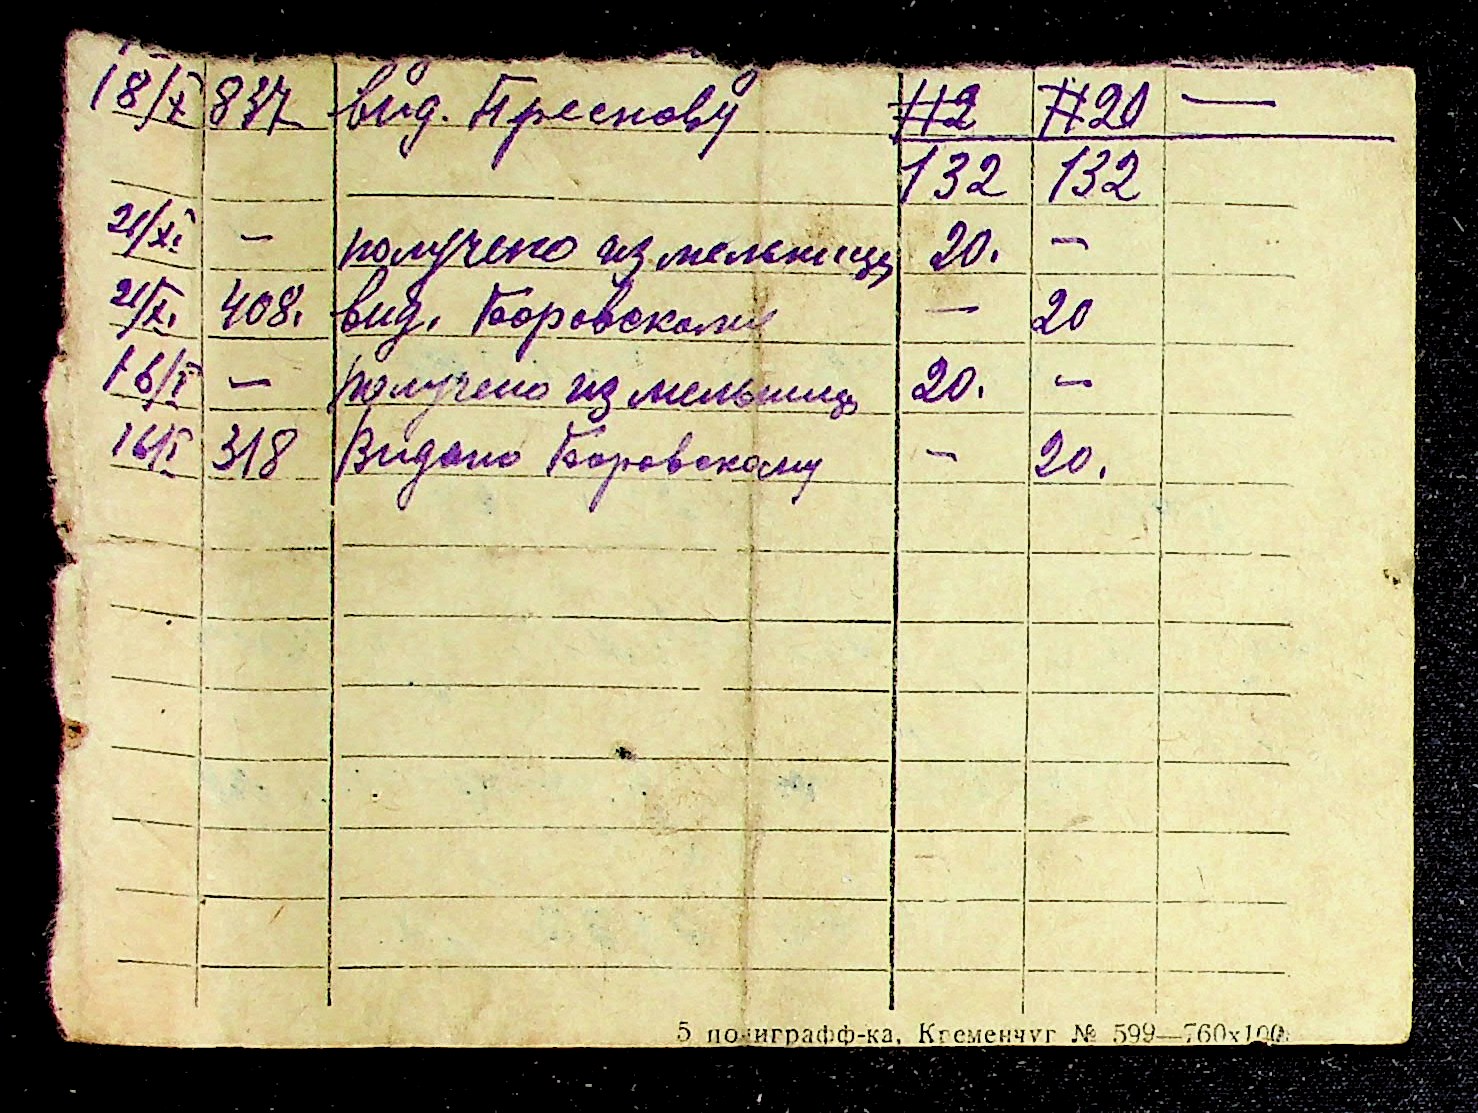 18/X 837 вид. Преснову #2 #20 —
132 132
21/XI. — получено из мельниц 20. —
21/X. 408. вид. Боровскому — 20
16/I — получено из мельниц 20. —
16/I 318 Видано Боровскому — 20.
5 полиграфф-ка, Кременчуг № 599—760х100